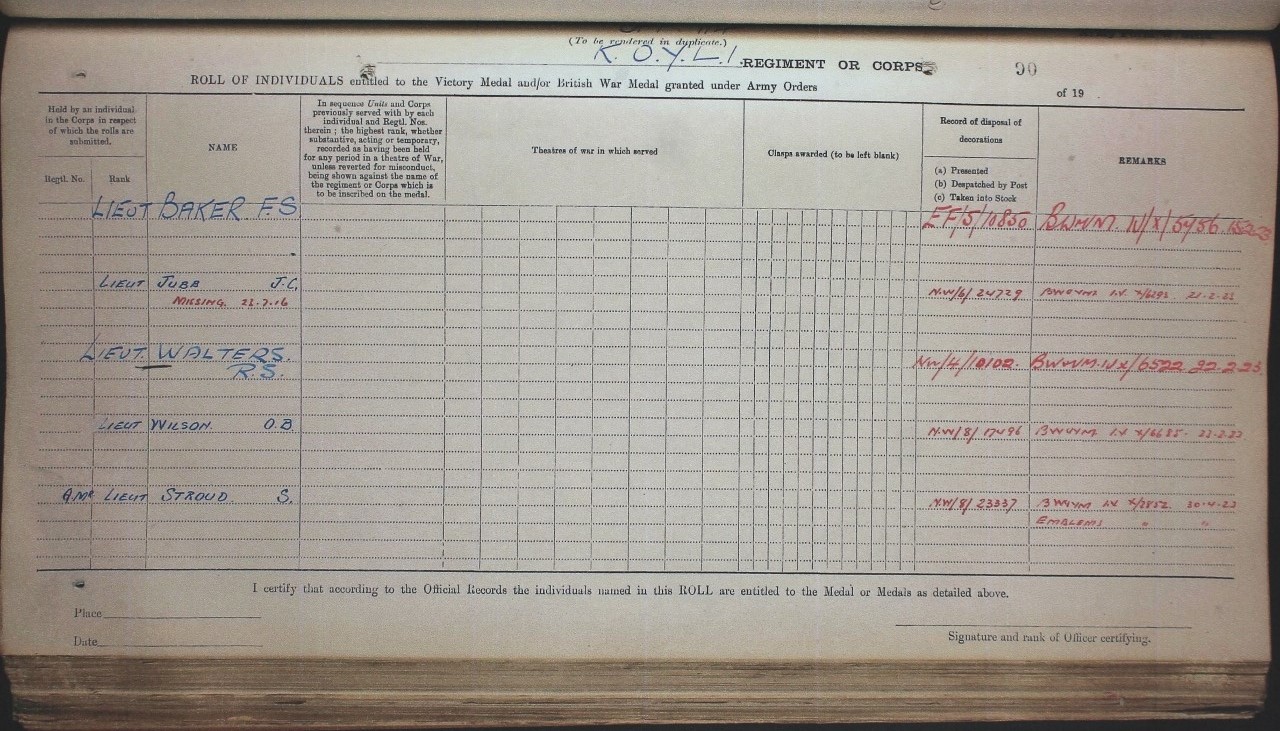 (To be rendered in duplicate.)
K. O. Y. L. I. REGIMENT OR CORPS
90
ROLL OF INDIVIDUALS entitled to the Victory Medal and/or British War Medal granted under Army Orders
of 19 .
Held by an individual
in the Corps in respect
of which the rolls are
submitted.
Regtl. No.
Rank
NAME
In sequence Units and Corps
previously served with by each
individual and Regtl. Nos.
therein ; the highest rank, whether
substantive, acting or temporary,
recorded as having been held
for any period in a theatre of War,
unless reverted for misconduct,
being shown against the name of
the regiment or Corps which is
to be inscribed on the medal.
Theatres of war in which served
Clasps awarded (to be left blank)
Record of disposal of
decorations
(a) Presented
(b) Despatched by Post
(c) Taken into Stock
REMARKS
LIEUT BAKER F.S EF/5/10850 BWVM. IV/X/5456
LIEUT JUBB J.C. NW/6/24729 BWVM IV X/6292 21-2-22
MISSING. 22.7.16
LIEUT. WALTERS. NW/4/10102. BWVVM. IVX/6522 22-2-23
R.S.
LIEUT WILSON. O.B. NW/8/17496 BWVVM IV X/6685. 22-2-22
LIEUT STROUD S. NW/8/23337 BWVVM IV X/2852. 30-4-23
EMBLEMS " "
I certify that according to the Official Records the individuals named in this ROLL are entitled to the Medal or Medals as detailed above.
Place
Date
Signature and rank of Officer certifying.